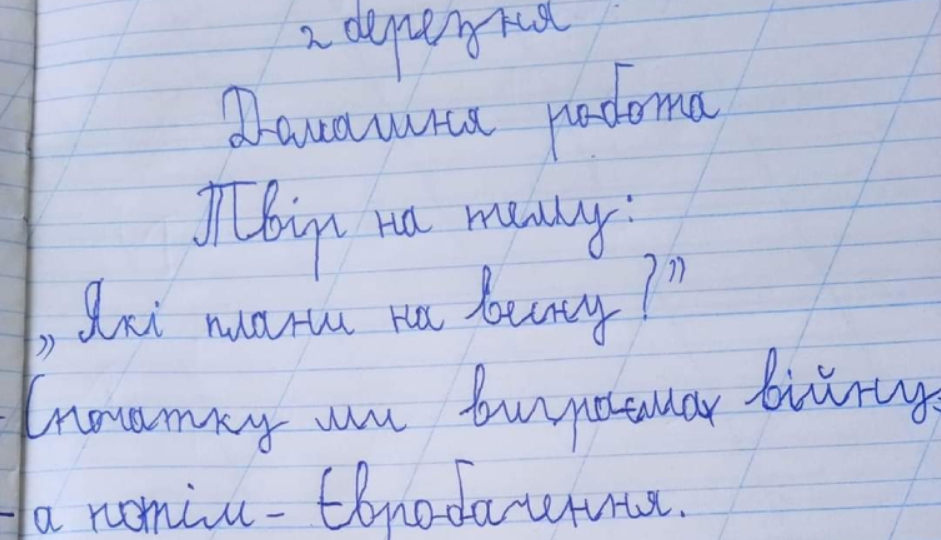 2 березня
Домашня робота
Твір на тему:
„Які плани на весну?”
- Спочатку ми виграємо війну,
- а потім - Євробачення.